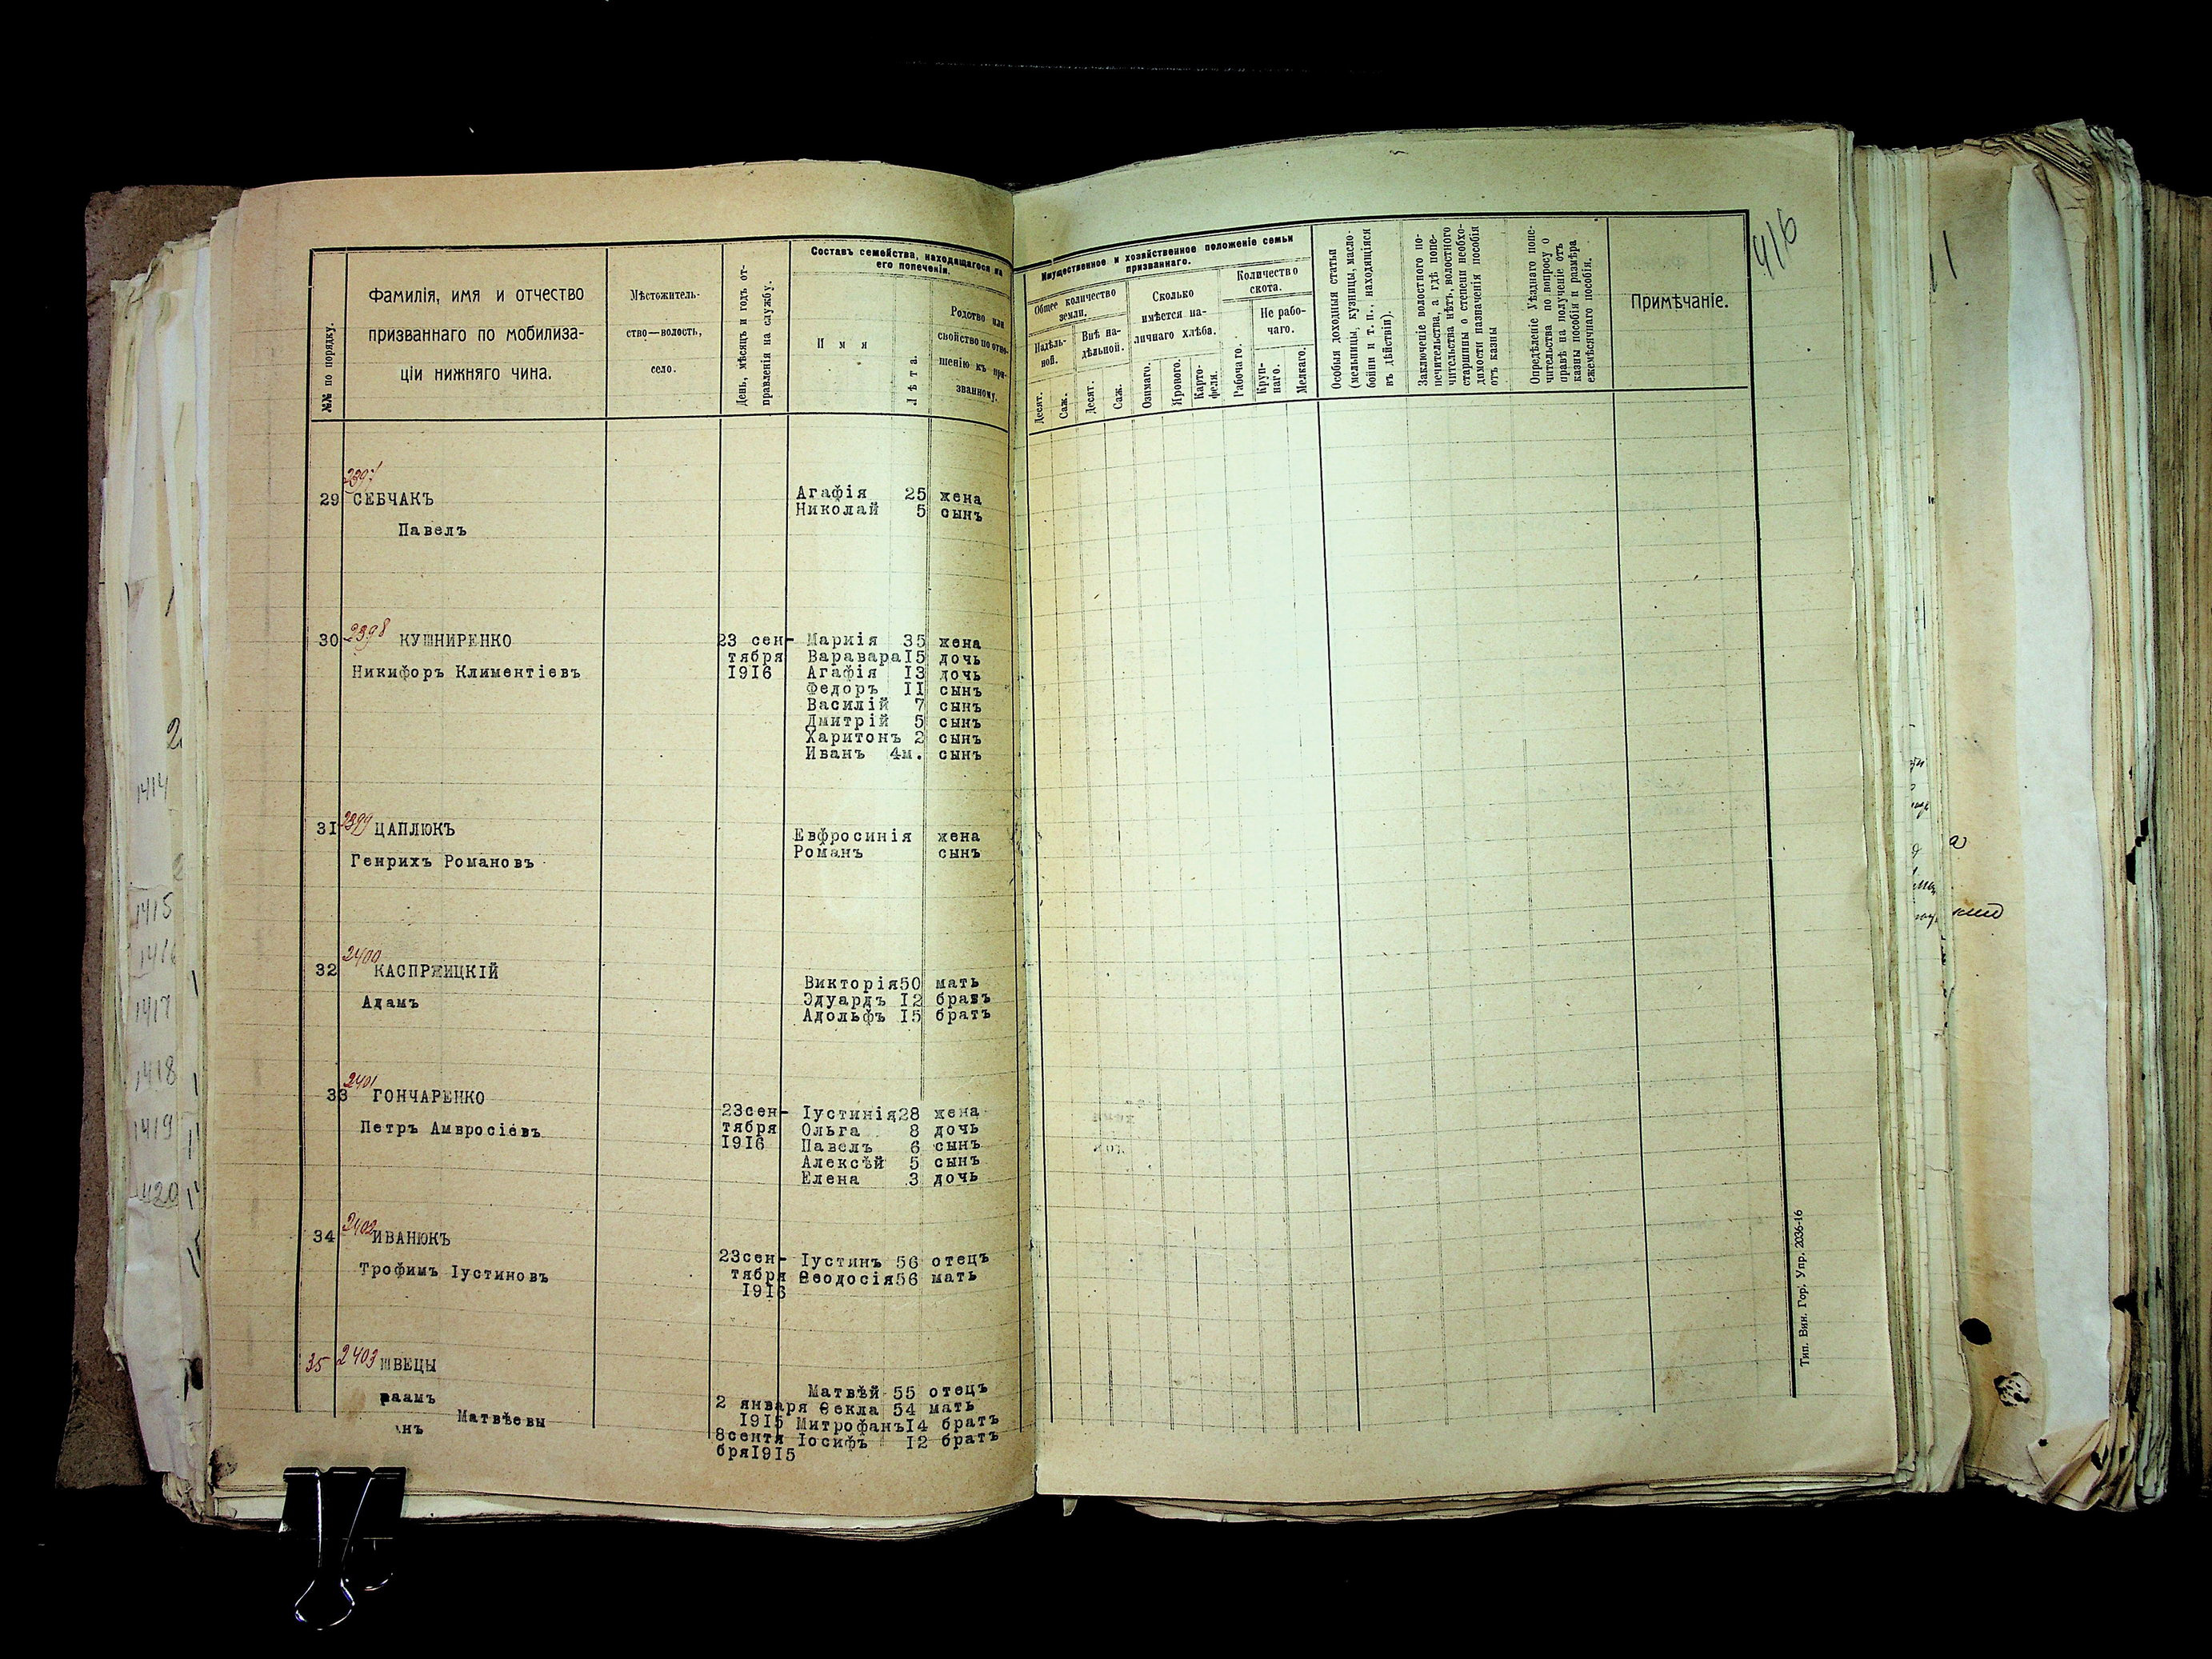 №№ по порядку.
Фамилія, имя и отчество
призваннаго по мобилиза-
ціи нижняго чина.
Мѣстожитель-
ство—волость,
село.
День, мѣсяцъ и годъ от-
правленія на службу.
Составъ семейства, находящагося на
его попеченіи.
Имя
Лѣта.
Родство или
свойство по отно-
шенію къ при-
званному.
29 2397 СЕБЧАКЪ
Павелъ
Агафія 25 жена
Николай 5 сынъ
30 2398 КУШНИРЕНКО
Никифоръ Климентіевъ
23 сен-
тября
1916
Маркія 35 жена
Варавара 15 дочь
Агафія 13 дочь
Федоръ 11 сынъ
Василій 7 сынъ
Дмитрій 5 сынъ
Харитонъ 2 сынъ
Иванъ 4м. сынъ
31 2399 ЦАПЛЮКЪ
Генрихъ Романовъ
Евфросинія жена
Романъ сынъ
32 2400 КАСПРЖИЦКІЙ
Адамъ
Викторія 50 мать
Эдуардъ 12 братъ
Адольфъ 15 братъ
33 2401 ГОНЧАРЕНКО
Петръ Амвросіевъ
23сен-
тября
1916
Іустинія 28 жена
Ольга 8 дочь
Павелъ 6 сынъ
Алексѣй 5 сынъ
Елена 3 дочь
34 2402 ИВАНЮКЪ
Трофимъ Іустиновъ
23сен-
тября
1916
Іустинъ 56 отецъ
Ѳеодосія 56 мать
35 2403 ШВЕЦЫ
раамъ
Матвѣевы
нъ
2 января
1915
8сентя
бря1915
Матвѣй 55 отецъ
Ѳекла 54 мать
Митрофанъ 14 братъ
Іосифъ 12 братъ
Имущественное и хозяйственное положеніе семьи
призваннаго.
Общее количество
земли.
Надѣль-
ной.
Внѣ на-
дѣльной.
Десят.
Саж.
Десят.
Саж.
Сколько
имѣется на-
личнаго хлѣба.
Озимаго.
Ярового.
Карто-
фели.
Количество
скота.
Рабочаго.
Не рабо-
чаго.
Круп-
наго.
Мелкаго.
Особыя доходныя статьи
(мельницы, кузницы, масло-
бойни и т. п., находящіяся
въ дѣйствіи).
Заключеніе волостного по-
печительства, а гдѣ попе-
чительства нѣтъ, волостного
старшины о степени необхо-
димости назначенія пособія
отъ казны
Опредѣленіе Уѣзднаго попе-
чительства по вопросу о
правѣ на полученіе отъ
казны пособія и размѣра
ежемѣсячнаго пособія.
Примѣчаніе.
416
Тип. Вин. Гор. Упр. 2036-16
2
1414
1415
1416
1417
1418
1419
1420